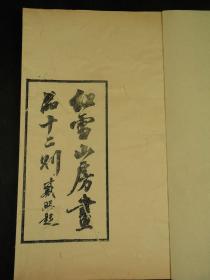 红雪山房畫
品十二则
戴熙題